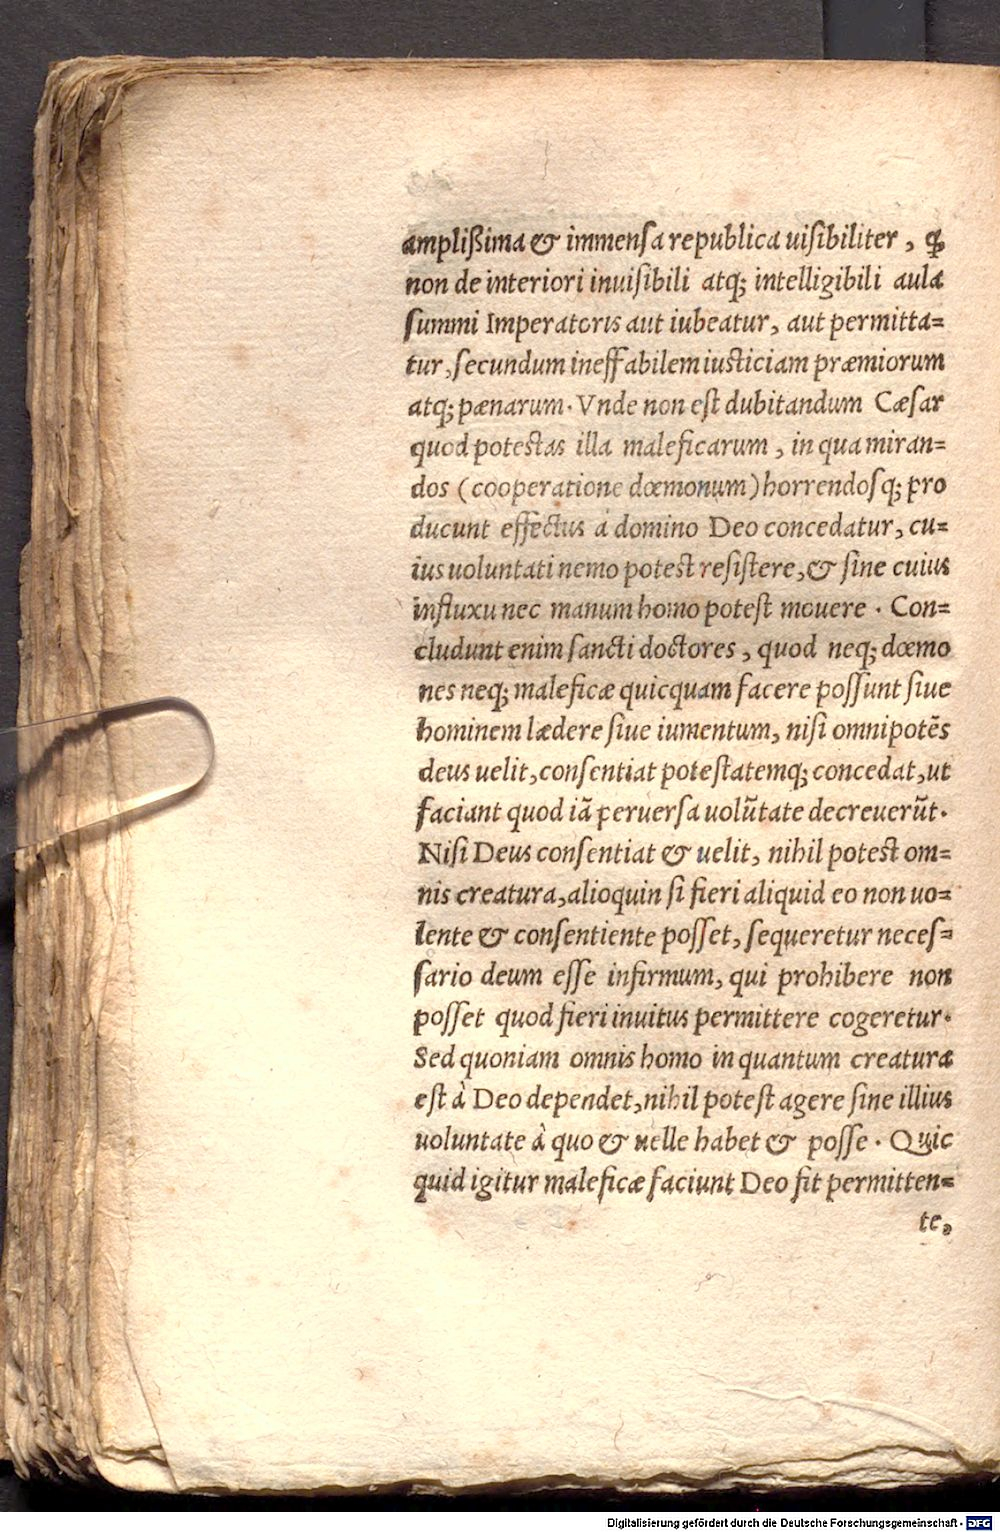 amplißima & immensa republica uisibiliter, ꝙ
non de interiori inuisibili atq; intelligibili aula
summi Imperatoris aut iubeatur, aut permitta=
tur, secundum ineffabilem iusticiam præmiorum
atq; pænarum. Vnde non est dubitandum Cæsar
quod potestas illa maleficarum, in qua miran=
dos (cooperatione dœmonum) horrendosq; pro
ducunt effectus á domino Deo concedatur, cu=
ius uoluntati nemo potest resistere, & sine cuius
influxu nec manum homo potest mouere. Con=
cludunt enim sancti doctores, quod neq; dœmo
nes neq; maleficæ quicquam facere possunt siue
hominem lædere siue iumentum, nisi omnipotẽs
deus uelit, consentiat potestatemq; concedat, ut
faciant quod iã peruersa uolũtate decreuerũt.
Nisi Deus consentiat & uelit, nihil potest om=
nis creatura, alioquin si fieri aliquid eo non uo=
lente & consentiente posset, sequeretur neces=
sario deum esse infirmum, qui prohibere non
posset quod fieri inuitus permittere cogeretur.
Sed quoniam omnis homo in quantum creatura
est à Deo dependet, nihil potest agere sine illius
uoluntate à quo & uelle habet & posse. Quic
quid igitur maleficæ faciunt Deo fit permitten=
te,
Digitalisierung gefördert durch die Deutsche Forschungsgemeinschaft - DFG